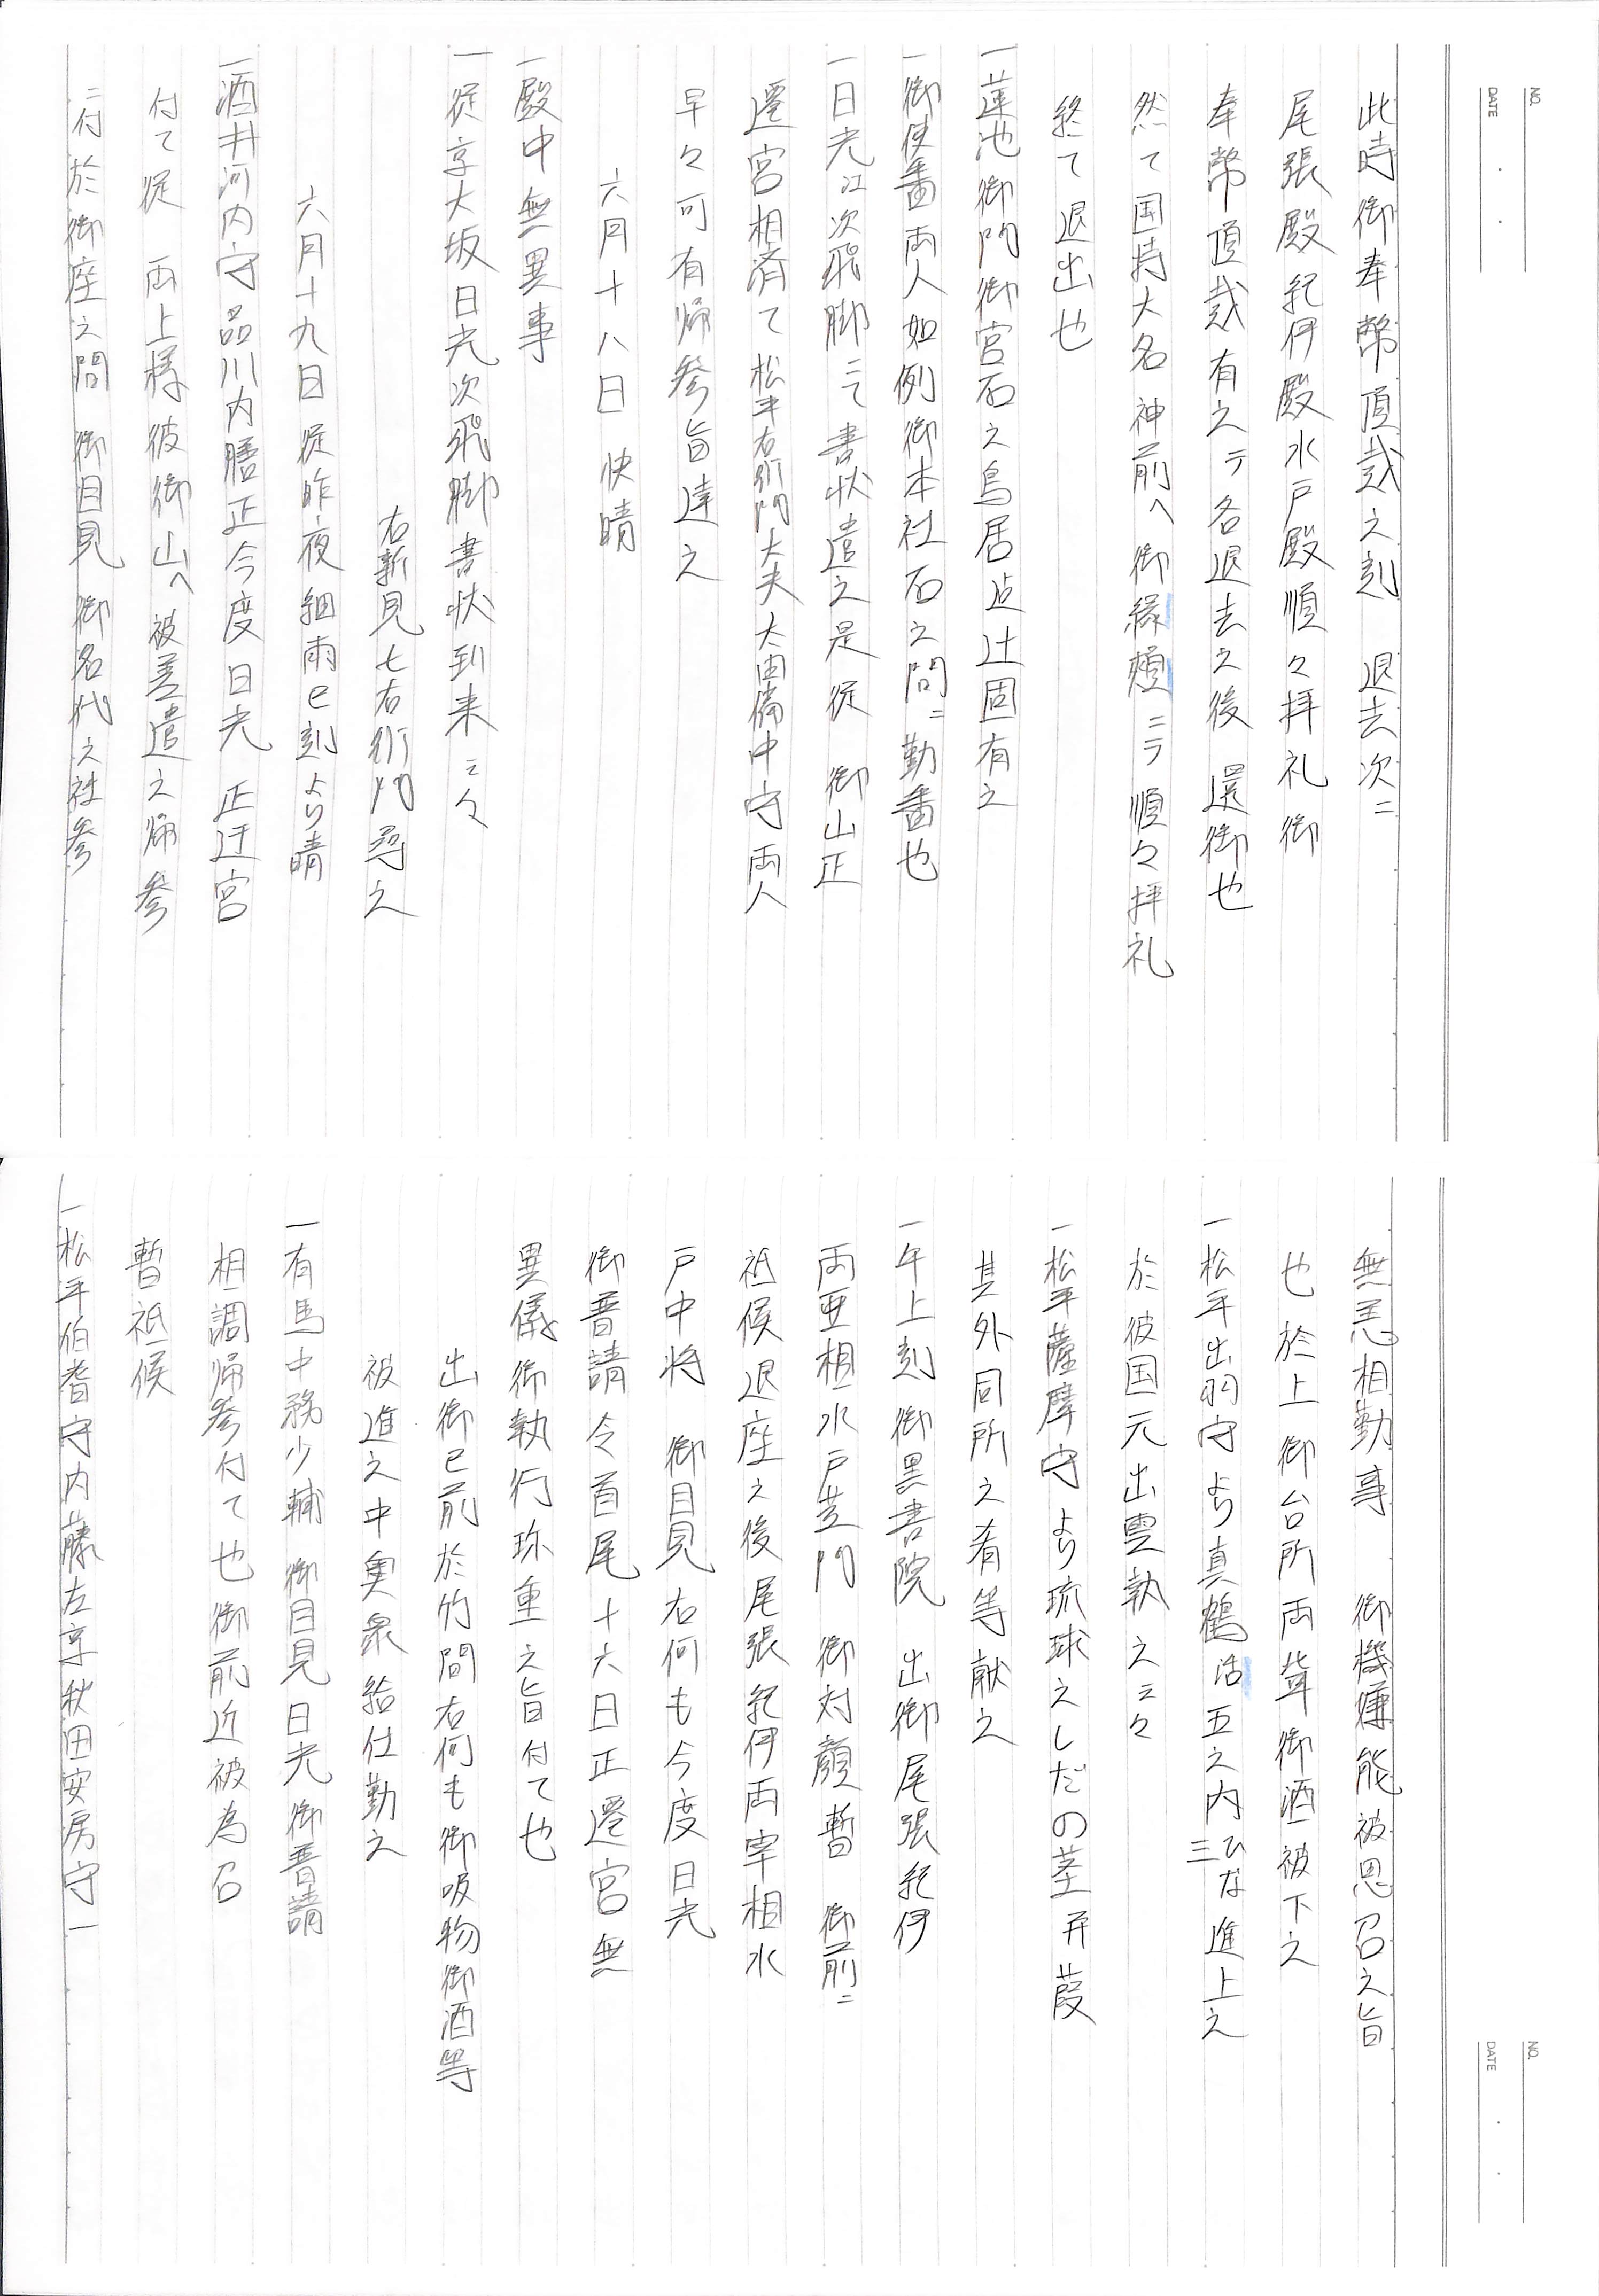 NO.
DATE
此時御奉幣頂戴之刻 退去次ニ
尾張殿紀伊殿水戸殿順々拝礼御
奉幣頂戴有之テ各退去之後 還御也
然て国持大名神前へ御縁頬ニテ順々拝礼
終て退出也
一蓮池御門御宮石之鳥居迠辻固有之
一御使番両人如例御本社石之間ニ勤番也
一日光江次飛脚ニて書状遣之是従 御山正
遷宮相済て松平右衛門大夫太田備中守両人
早々可有帰参旨達之
六月十八日 快晴
一殿中無異事
一従京大坂日光次飛脚書状到来云々
右新見七右衛門尋之
六月十九日従昨夜細雨巳刻より晴
一酒井河内守品川内膳正今度日光 正迁宮
付て従 両上様彼御山へ被差遣之帰参
ニ付於御座之間 御目見 御名代之社参
NO.
DATE
無恙相勤事 御機嫌能被思召之旨
也於上御台所両輩御酒被下之
一松平出羽守より真鶴活五之内ひな三進上之
於彼国元出雲執之云々
一松平薩摩守より琉球之しだの茎并葭
其外同所之肴等献之
一午上刻御黒書院 出御尾張紀伊
両亜相水戸黄門 御対顔暫 御前ニ
祗候退座之後尾張紀伊両宰相水
戸中将 御目見右何も今度日光
御普請令首尾十六日正遷宮無
異儀御執行珎重之旨付て也
出御已前於竹間右何も御吸物御酒等
被進之中奥衆給仕勤之
一有馬中務少輔 御目見日光御普請
相調帰参付て也御前近被為召
暫祗候
一松平伯耆守内藤左京秋田安房守一